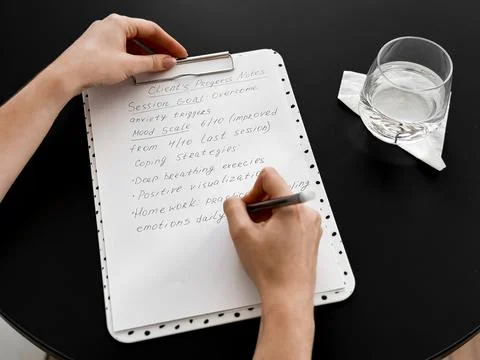 Client's Progress Notes
Session Goal: Overcome
anxiety triggers
Mood Scale 6/10 (improved
from 4/10 last session)
Coping strategies:
• Deep breathing exercies
• Positive visualization
• Homework:
emotions daily